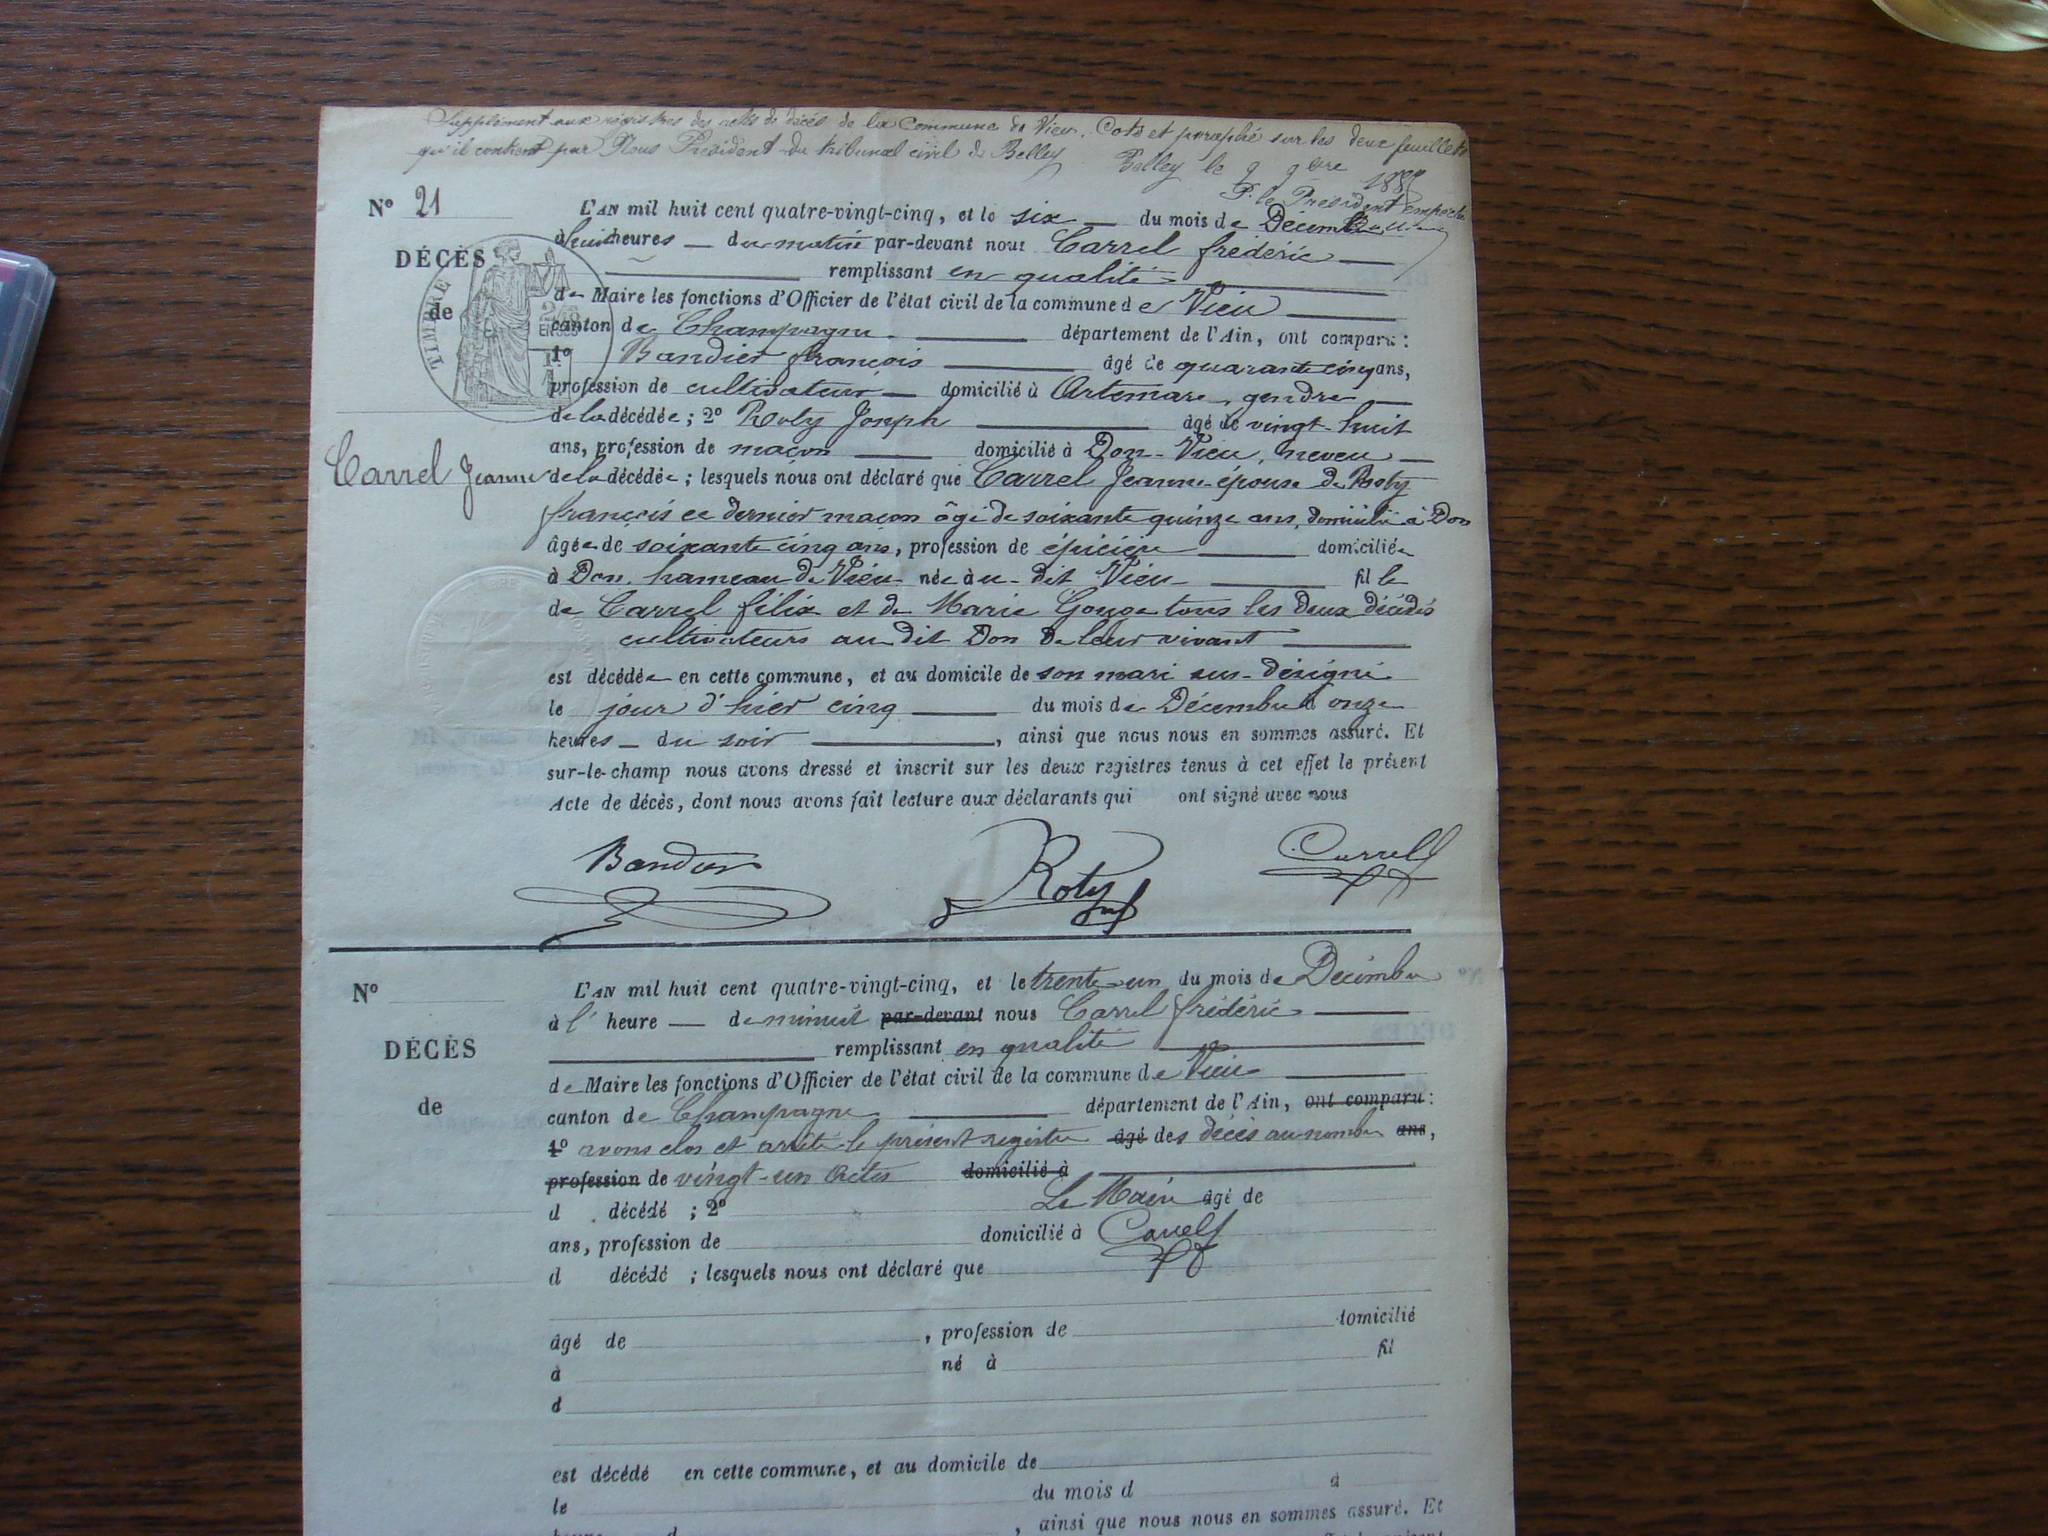 Supplément aux registres des actes de décès de la Commune de Vieu. Coté et paraphé sur les deux feuillets
qu'il contient par Nous Président du tribunal civil de Belley Belley le 9 9bre
P. le Président empeché
N° 21
L'AN mil huit cent quatre-vingt-cinq, et le six du mois de Décembre
à huit heures du matin par-devant nous Carrel frédéric
DÉCÈS
remplissant en qualité
de Maire les fonctions d'Officier de l'état civil de la commune de Vieu
de
TIMBRE
canton de Champagne département de l'Ain, ont comparu :
1° Bandier françois âgé de quarante cinq ans,
profession de cultivateur domicilié à Artemare, gendre
de la décédée ; 2° Roty Joseph âgé de vingt-huit
ans, profession de maçon domicilié à Don-Vieu, neveu
Carrel Jeanne
de la décédée ; lesquels nous ont déclaré que Carrel Jeanne épouse de Roty
françois ce dernier maçon âgé de soixante quinze ans, domicilié à Don
âgée de soixante cinq ans, profession de épicière domiciliée
à Don, hameau de Vieu née au-dit Vieu fille
de Carrel félix et de Marie Gouge tous les deux décédés
cultivateurs au dit Don de leur vivant
est décédée en cette commune, et au domicile de son mari sus-désigné
le jour d'hier cinq du mois de Décembre à onze
heures du soir, ainsi que nous nous en sommes assuré. Et
sur-le-champ nous avons dressé et inscrit sur les deux registres tenus à cet effet le présent
Acte de décès, dont nous avons fait lecture aux déclarants qui ont signé avec nous
Bandier Roty Carrel f
N°
L'AN mil huit cent quatre-vingt-cinq, et le trente-un du mois de Décembre
à l'heure de minuit par-devant nous Carrel frédéric
DÉCÈS
remplissant en qualité
de Maire les fonctions d'Officier de l'état civil de la commune de Vieu
de
canton de Champagne département de l'Ain, ont comparu :
1° avons clos et arrêté le présent registre âgé des décès au nombre ans,
profession de vingt-un actes domicilié à
d décédé ; 2° Le Maire âgé de
ans, profession de domicilié à Carrel f
d décédé ; lesquels nous ont déclaré que
âgé de , profession de domicilié
à né à fil
d
est décédé en cette commune, et au domicile de
le du mois d à
heure d , ainsi que nous nous en sommes assuré. Et